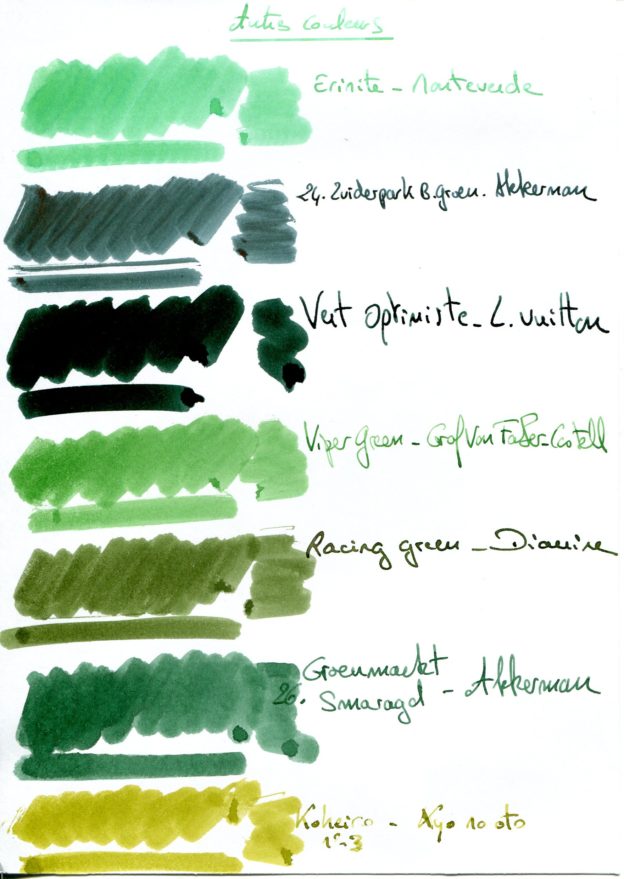 Autres couleurs
Erinite - Monteverde
24. Zuiderpark B.groen. Akkerman
Vert Optimiste - L. Vuitton
Viper Green - Graf Von Faber-Castell
Racing green - Diamine
Groenmarkt
26. Smaragd - Akkerman
Kokeiro - Kyo no oto
n°3